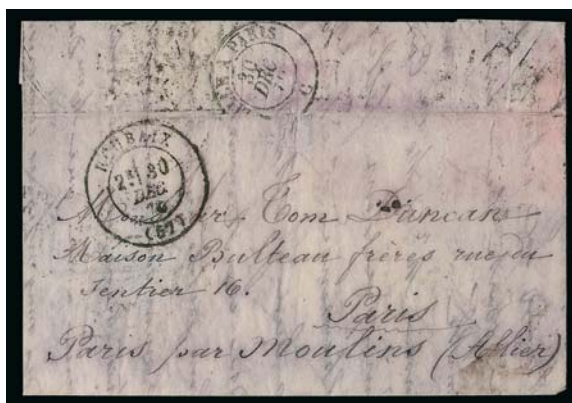 A PARIS
30
DEC
ROUBAIX
2E 30
DEC.
70
(57)
Monsieur Tom Duncan
Maison Bulteau frères rue du
Sentier 16.
Paris
Paris par Moulins (Allier)